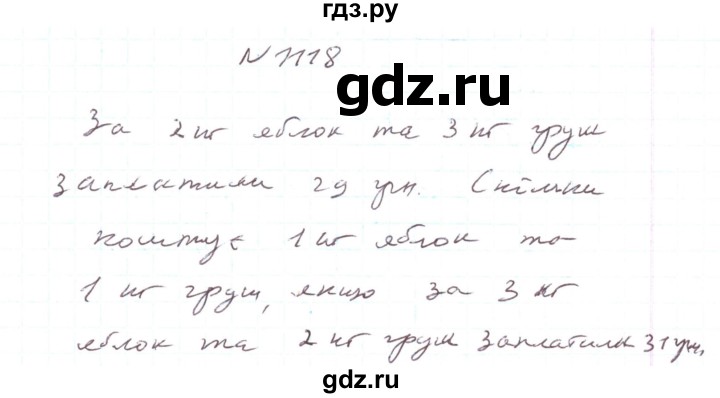 гдз.ру
N 1118
gdz.ru
За 2 кг яблок та 3 кг груш
заплатили 29 грн. Скільки
коштує 1 кг яблок та
1 кг груш, якщо за 3 кг
яблок та 2 кг груш заплатили 31 грн.
gdz.ru